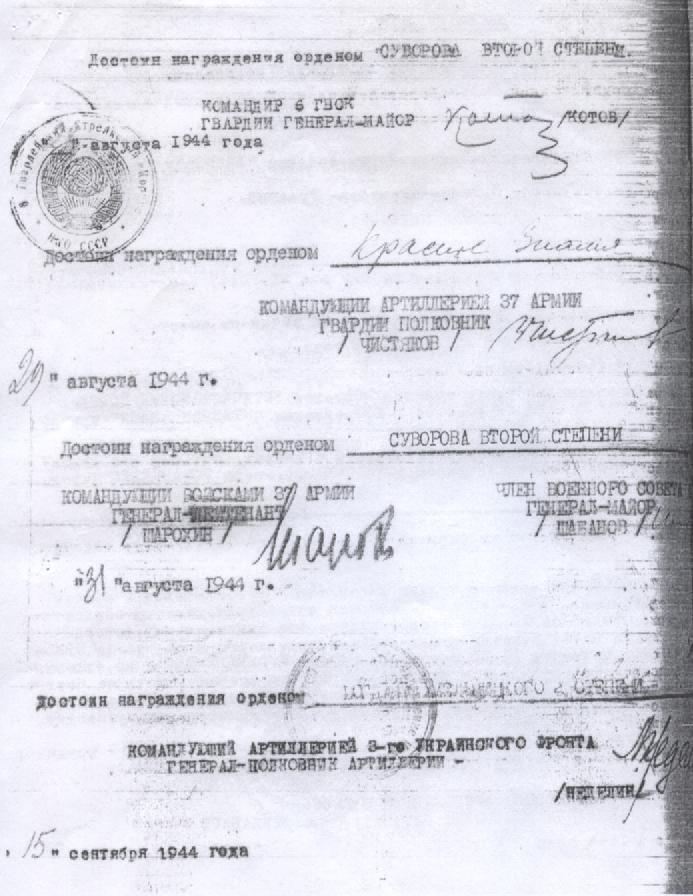 Достоин награждения орденом "СУВОРОВА ВТОРОЙ СТЕПЕНИ.
КОМАНДИР 6 ГВСК
ГВАРДИИ ГЕНЕРАЛ-МАЙОР /КОТОВ/
августа 1944 года
НКО СССР
Достоин награждения орденом Красное Знамя
КОМАНДУЮЩИЙ АРТИЛЛЕРИЕЙ 37 АРМИИ
ГВАРДИИ ПОЛКОВНИК
/ ЧИСТЯКОВ /
29 " августа 1944 г.
Достоин награждения орденом СУВОРОВА ВТОРОЙ СТЕПЕНИ
КОМАНДУЮЩИЙ ВОЙСКАМИ 37 АРМИИ
ГЕНЕРАЛ-ЛЕЙТЕНАНТ
/ ШАРОХИН /
ЧЛЕН ВОЕННОГО СОВЕТА
ГЕНЕРАЛ-МАЙОР
/ ШАБАНОВ /
"31 "августа 1944 г.
Достоин награждения орденом БОГДАНА ХМЕЛЬНИЦКОГО 2 СТЕПЕНИ
КОМАНДУЮЩИЙ АРТИЛЛЕРИЕЙ 3-го УКРАИНСКОГО ФРОНТА
ГЕНЕРАЛ-ПОЛКОВНИК АРТИЛЛЕРИИ -
/НЕДЕЛИН/
15 " сентября 1944 года